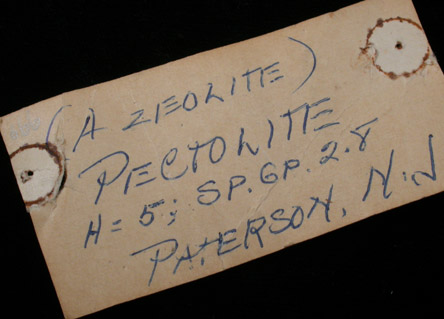 (A ZEOLITE)
PECTOLITE
H = 5; SP. GP. 2.8
PATERSON, N.J